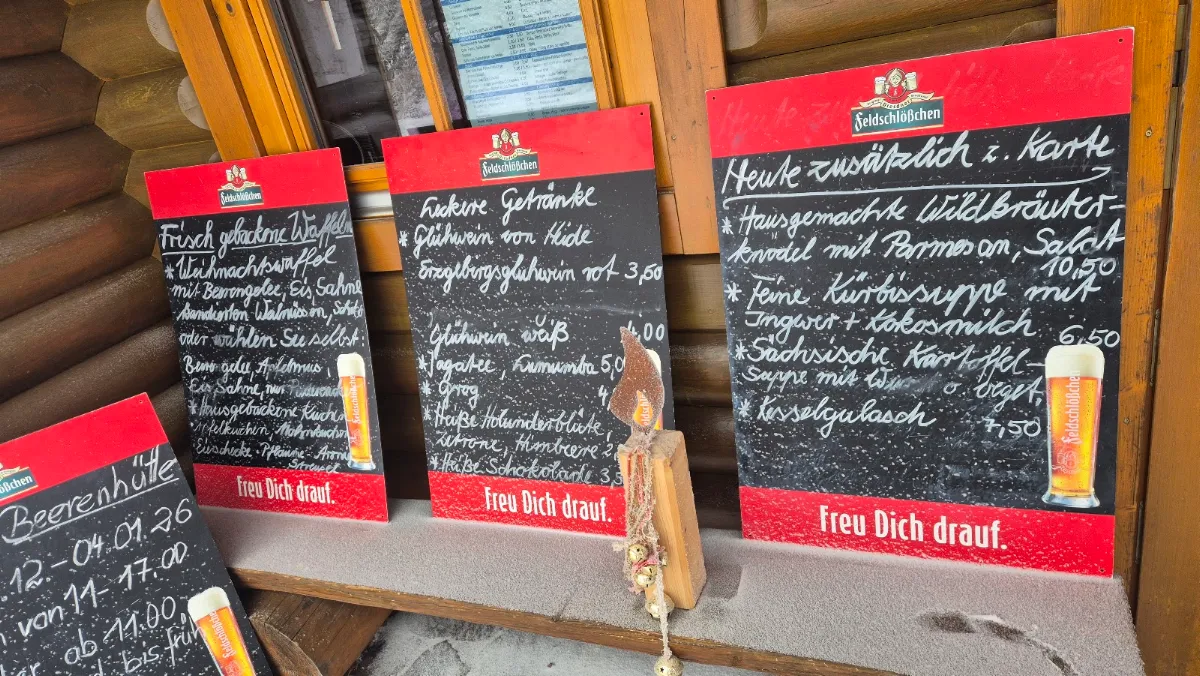 Feldschlößchen
Frisch gebackene Waffeln
* Weihnachtswaffel
mit Beerengelee, Eis, Sahne
oder wählen Sie selbst:
Beerengelee, Apfelmus,
Eis, Sahne, nur
* Hausgebackene Kuchen
Apfelkuchen Mohnkuchen
Eierschecke - Pflaume -
Streusel
Freu Dich drauf.
Feldschlößchen
Leckere Getränke
* Glühwein von Heide
Erzgebirgsglühwein rot 3,50
Glühwein weiß 4,00
* Jagatee, Lumumba 5,0
* Grog 4
* Heiße Holunderblüte,
Zitrone, Himbeere
* Heiße Schokolade 3,5
Freu Dich drauf.
Feldschlößchen
Heute zusätzlich z. Karte
* Hausgemachte Wildkräuter-
knödel mit Parmesan, Salat
10,50
* Feine Kürbissuppe mit
Ingwer + Kokosmilch
6,50
* Sächsische Kartoffel-
Suppe mit
* Kesselgulasch
7,50
Feldschlößchen
Freu Dich drauf.
Feldschlößchen
Beerenhütle
12.-04.01.26
von 11-17.00
ab 11.00,
bis früh